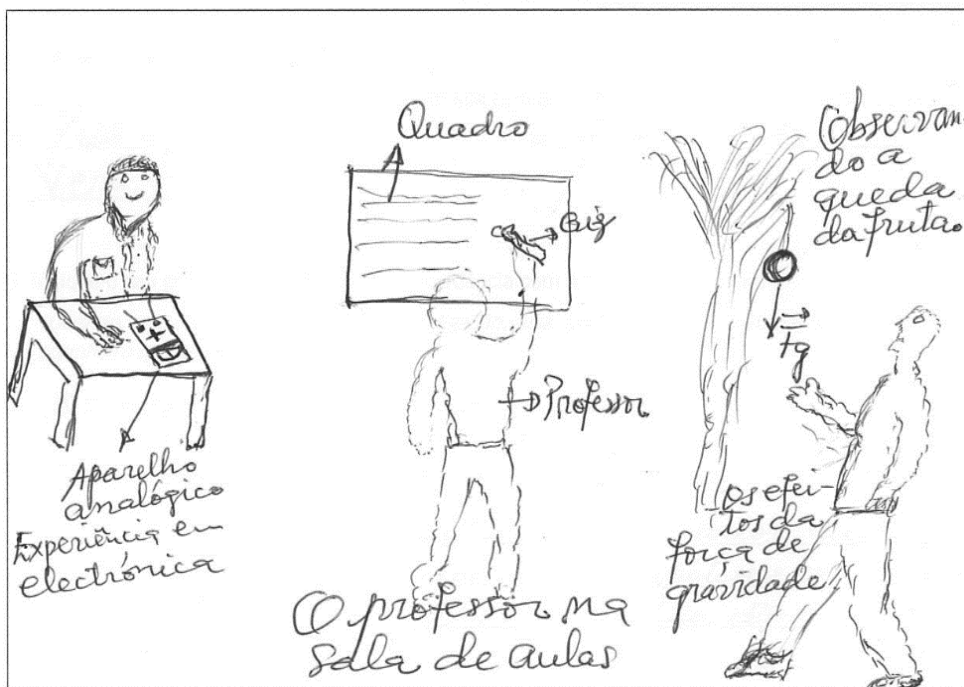 Aparelho
analógico
Experiência em
electrónica
Quadro
Giz
Professor
O professor na
Sala de aulas
Observan-
do a
queda
da fruta.
Fg
Os efei-
tos da
força de
gravidade